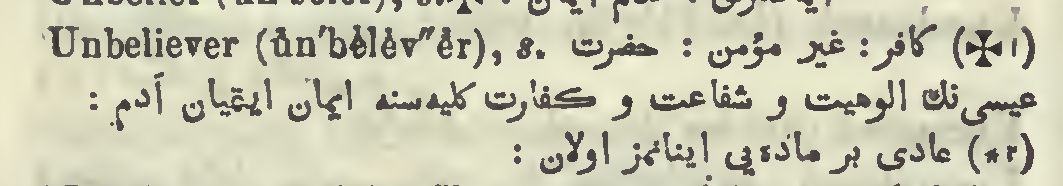 Unbeliever (ŭn′bėlėv″ėr), s. (✠١) كافر : غير مؤمن : حضرت
عيسى نڭ الوهيت و شفاعت و كفارت كليه سنه ايمان ايتميان آدم :
(*٢) عادى بر ماده يى اينانمز اولان :